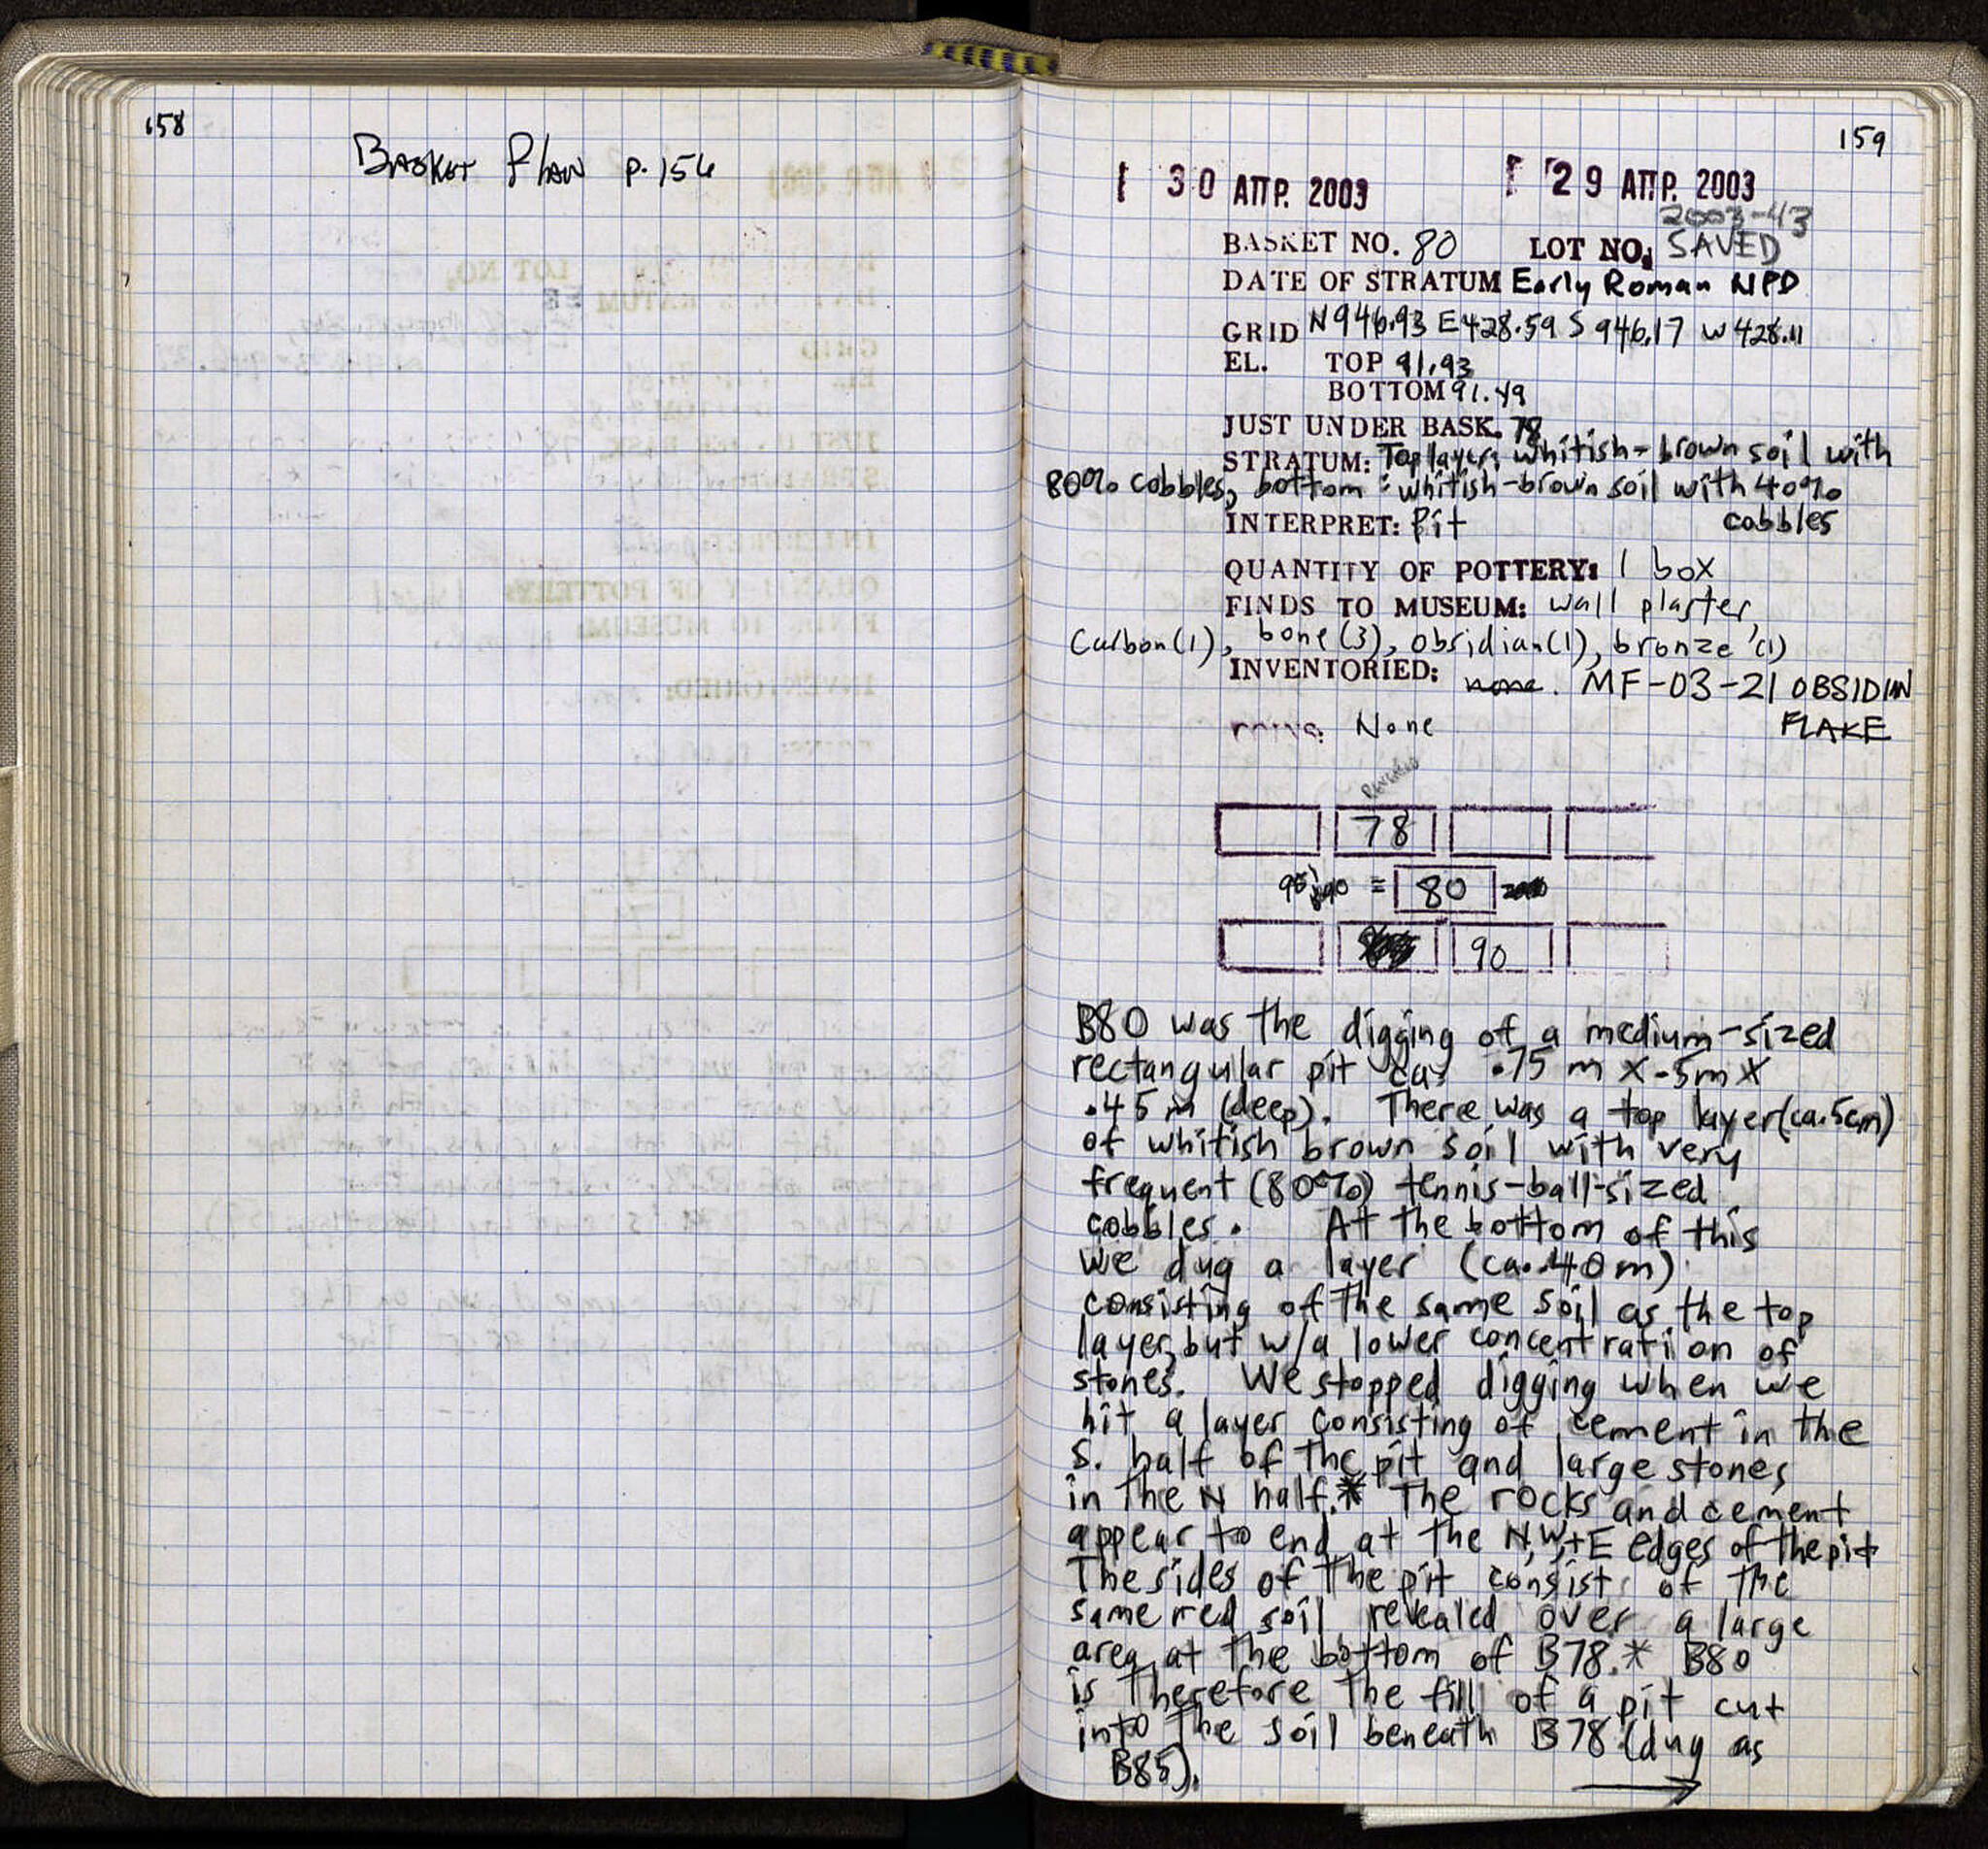 158
BASKET PLAN p. 156
159
30 ΑΠΡ. 2003 29 ΑΠΡ. 2003
2003-43
BASKET NO. 80 LOT NO. SAVED
DATE OF STRATUM Early Roman NPD
GRID N946.93 E428.59 S 946.17 W 428.11
EL. TOP 91.93
BOTTOM 91.49
JUST UNDER BASK. 78
STRATUM: Top layer: whitish-brown soil with
80% cobbles, bottom: whitish-brown soil with 40%
cobbles
INTERPRET: Pit
QUANTITY OF POTTERY: 1 box
FINDS TO MUSEUM: wall plaster,
Carbon(1), bone(3), obsidian(1), bronze (1)
INVENTORIED: none. MF-03-21 OBSIDIAN
FLAKE
COINS: None
78
= 80
90
B80 was the digging of a medium-sized
rectangular pit ca. .75 m x .5m x
.45 m (deep). There was a top layer(ca.5cm)
of whitish brown soil with very
frequent (80%) tennis-ball-sized
cobbles. At the bottom of this
we dug a layer (ca. .40m)
consisting of the same soil as the top
layer, but w/a lower concentration of
stones. We stopped digging when we
hit a layer consisting of cement in the
S. half of the pit and large stones
in the N half.* The rocks and cement
appear to end at the N,W,+E edges of the pit
The sides of the pit consist of the
same red soil revealed over a large
area at the bottom of B78.* B80
is therefore the fill of a pit cut
into the soil beneath B78 (dug as
B85).